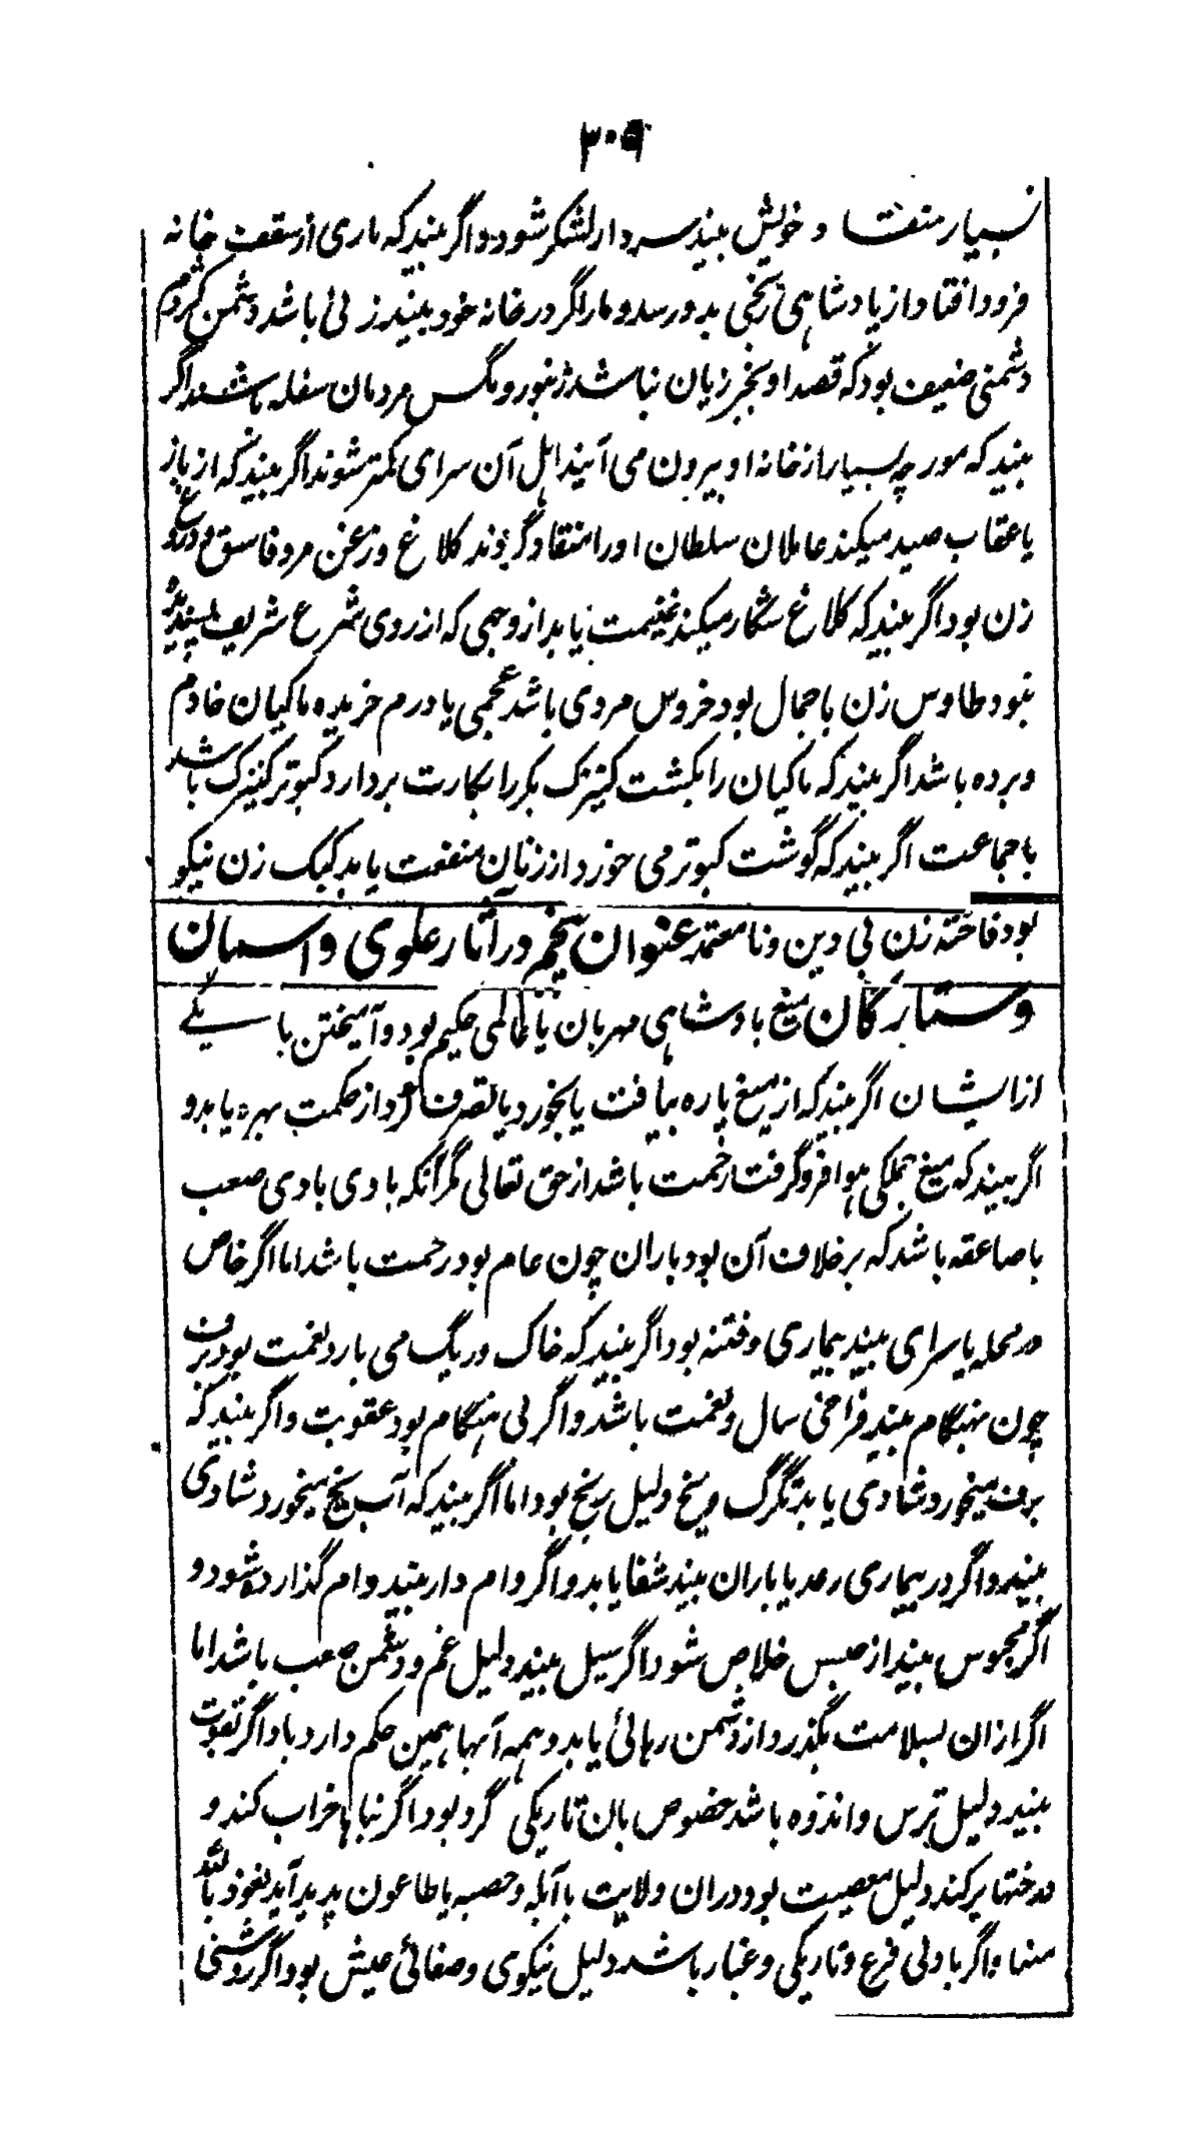 ۳۰۹
بسیار منقاد خویش بیند سردار لشکر شود و اگر بیند که ماری از سقف خانه
فرود افتاد از پادشاهی رنجی بدو رسد و مار اگر در خانه خود بیند زنی باشد دشمن کژدم
دشمنی ضعیف بود که قصد او بجز زیان نباشد زنبور و مگس مردمان سفله باشند اگر
بیند که مورچه بسیار از خانه او بیرون می آیند اهل آن سرای کمتر شوند اگر بیند که از باز
یا عقاب صید میکند عاملان سلطان او را منقاد گردند کلاغ و زغن مرد فاسق و دروغ
زن بود اگر بیند که کلاغ شکار میکند غنیمت یابد از وجهی که از روی شرع شریف پسندیده
نبود طاوس زن با جمال بود خروس مردی باشد عجمی یا درم خریده ماکیان خادم
و برده باشد اگر بیند که ماکیان را بکشت کنیزک بکر را بکارت بردارد کبوتر کنیزک باشد
با جماعت اگر بیند که گوشت کبوتر می خورد از زنان منفعت یابد کبک زن نیکو
بود فاخته زن بی دین و نا معتمد عنوان پنجم در آثار علوی و آسمان
و ستارگان میغ بادشاهی مهربان یا عالمی حکیم بود و آمیختن با یکے
ازایشان اگر بیند که از میغ پاره بیافت یا بخورد یا تصرف کرد از حکمت بهره یابد و
اگر بیند که میغ بجملگی هوا فرو گرفت رحمت باشد از حق تعالی مگر آنکه بادی بادی صعب
با صاعقه باشد که بر خلاف آن بود باران چون عام بود رحمت باشد اما اگر خاص
در محله یا سرای بیند بیماری و فتنه بود اگر بیند که خاک و ریگ می بارد نعمت بود برف
چون بهنگام بیند فراخی سال و نعمت باشد و اگر بی هنگام بود عقوبت و اگر بیند که
برف میخورد شادی یابد تگرگ و یخ دلیل رنج بود اما اگر بیند که آب یخ میخورد شادی
بیند و اگر در بیماری رعد یا باران بیند شفا یابد و اگر وام دار بیند وام گذارده شود و
اگر محبوس بیند از حبس خلاص شود اگر سیل بیند دلیل غم و دشمن صعب باشد اما
اگر ازان بسلامت بگذرد از دشمن رهائی یابد و همه آبها همین حکم دارد باد اگر بقوت
بیند دلیل ترس و اندوه باشد خصوص بان تاریکی گرد بود اگر بناها خراب کند و
درختها بر کند دلیل معصیت بود دران ولایت یا آبله و حصبه یا طاعون پدید آید نعوذ بالله
منها و اگر باد بی فزع و تاریکی و غبار باشد دلیل نیکوی و صفائی عیش بود اگر روشنها